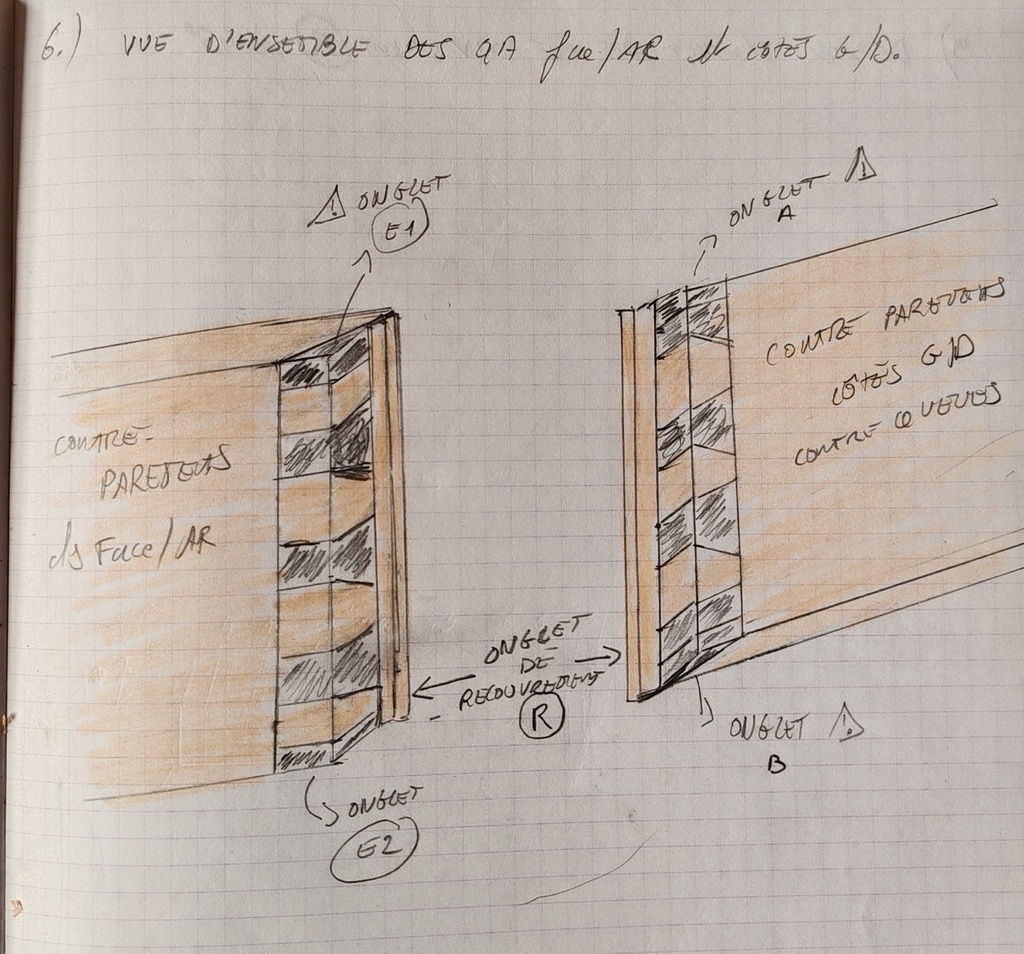 6.) VUE D'ENSEMBLE DES QA face/AR et côtés G/D.
⚠ ONGLET
E1
ONGLET ⚠
A
CONTRE-
PAREMENTS
ds Face/AR
CONTRE PAREMENTS
CÔTÉS G/D
CONTRE
ONGLET
DE
RECOUVREMENT
R
ONGLET ⚠
B
ONGLET
E2